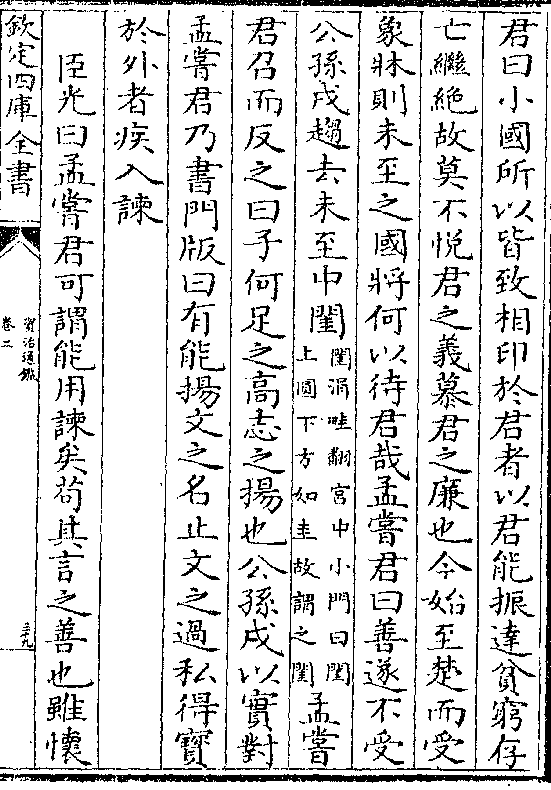 君曰小國所以皆致相印於君者以君能振達貧窮存
亡繼絶故莫不悦君之義慕君之廉也今始至楚而受
象牀則未至之國將何以待君哉孟嘗君曰善遂不受
公孫戌趨去未至中閨閨涓畦翻宮中小門曰閨上圓下方如圭故謂之閨孟嘗
君召而反之曰子何足之高志之揚也公孫戌以實對
孟嘗君乃書門版曰有能揚文之名止文之過私得寶
於外者疾入諫
臣光曰孟嘗君可謂能用諫矣苟其言之善也雖懷
欽定四庫全書
資治通鑑
卷二
三十九